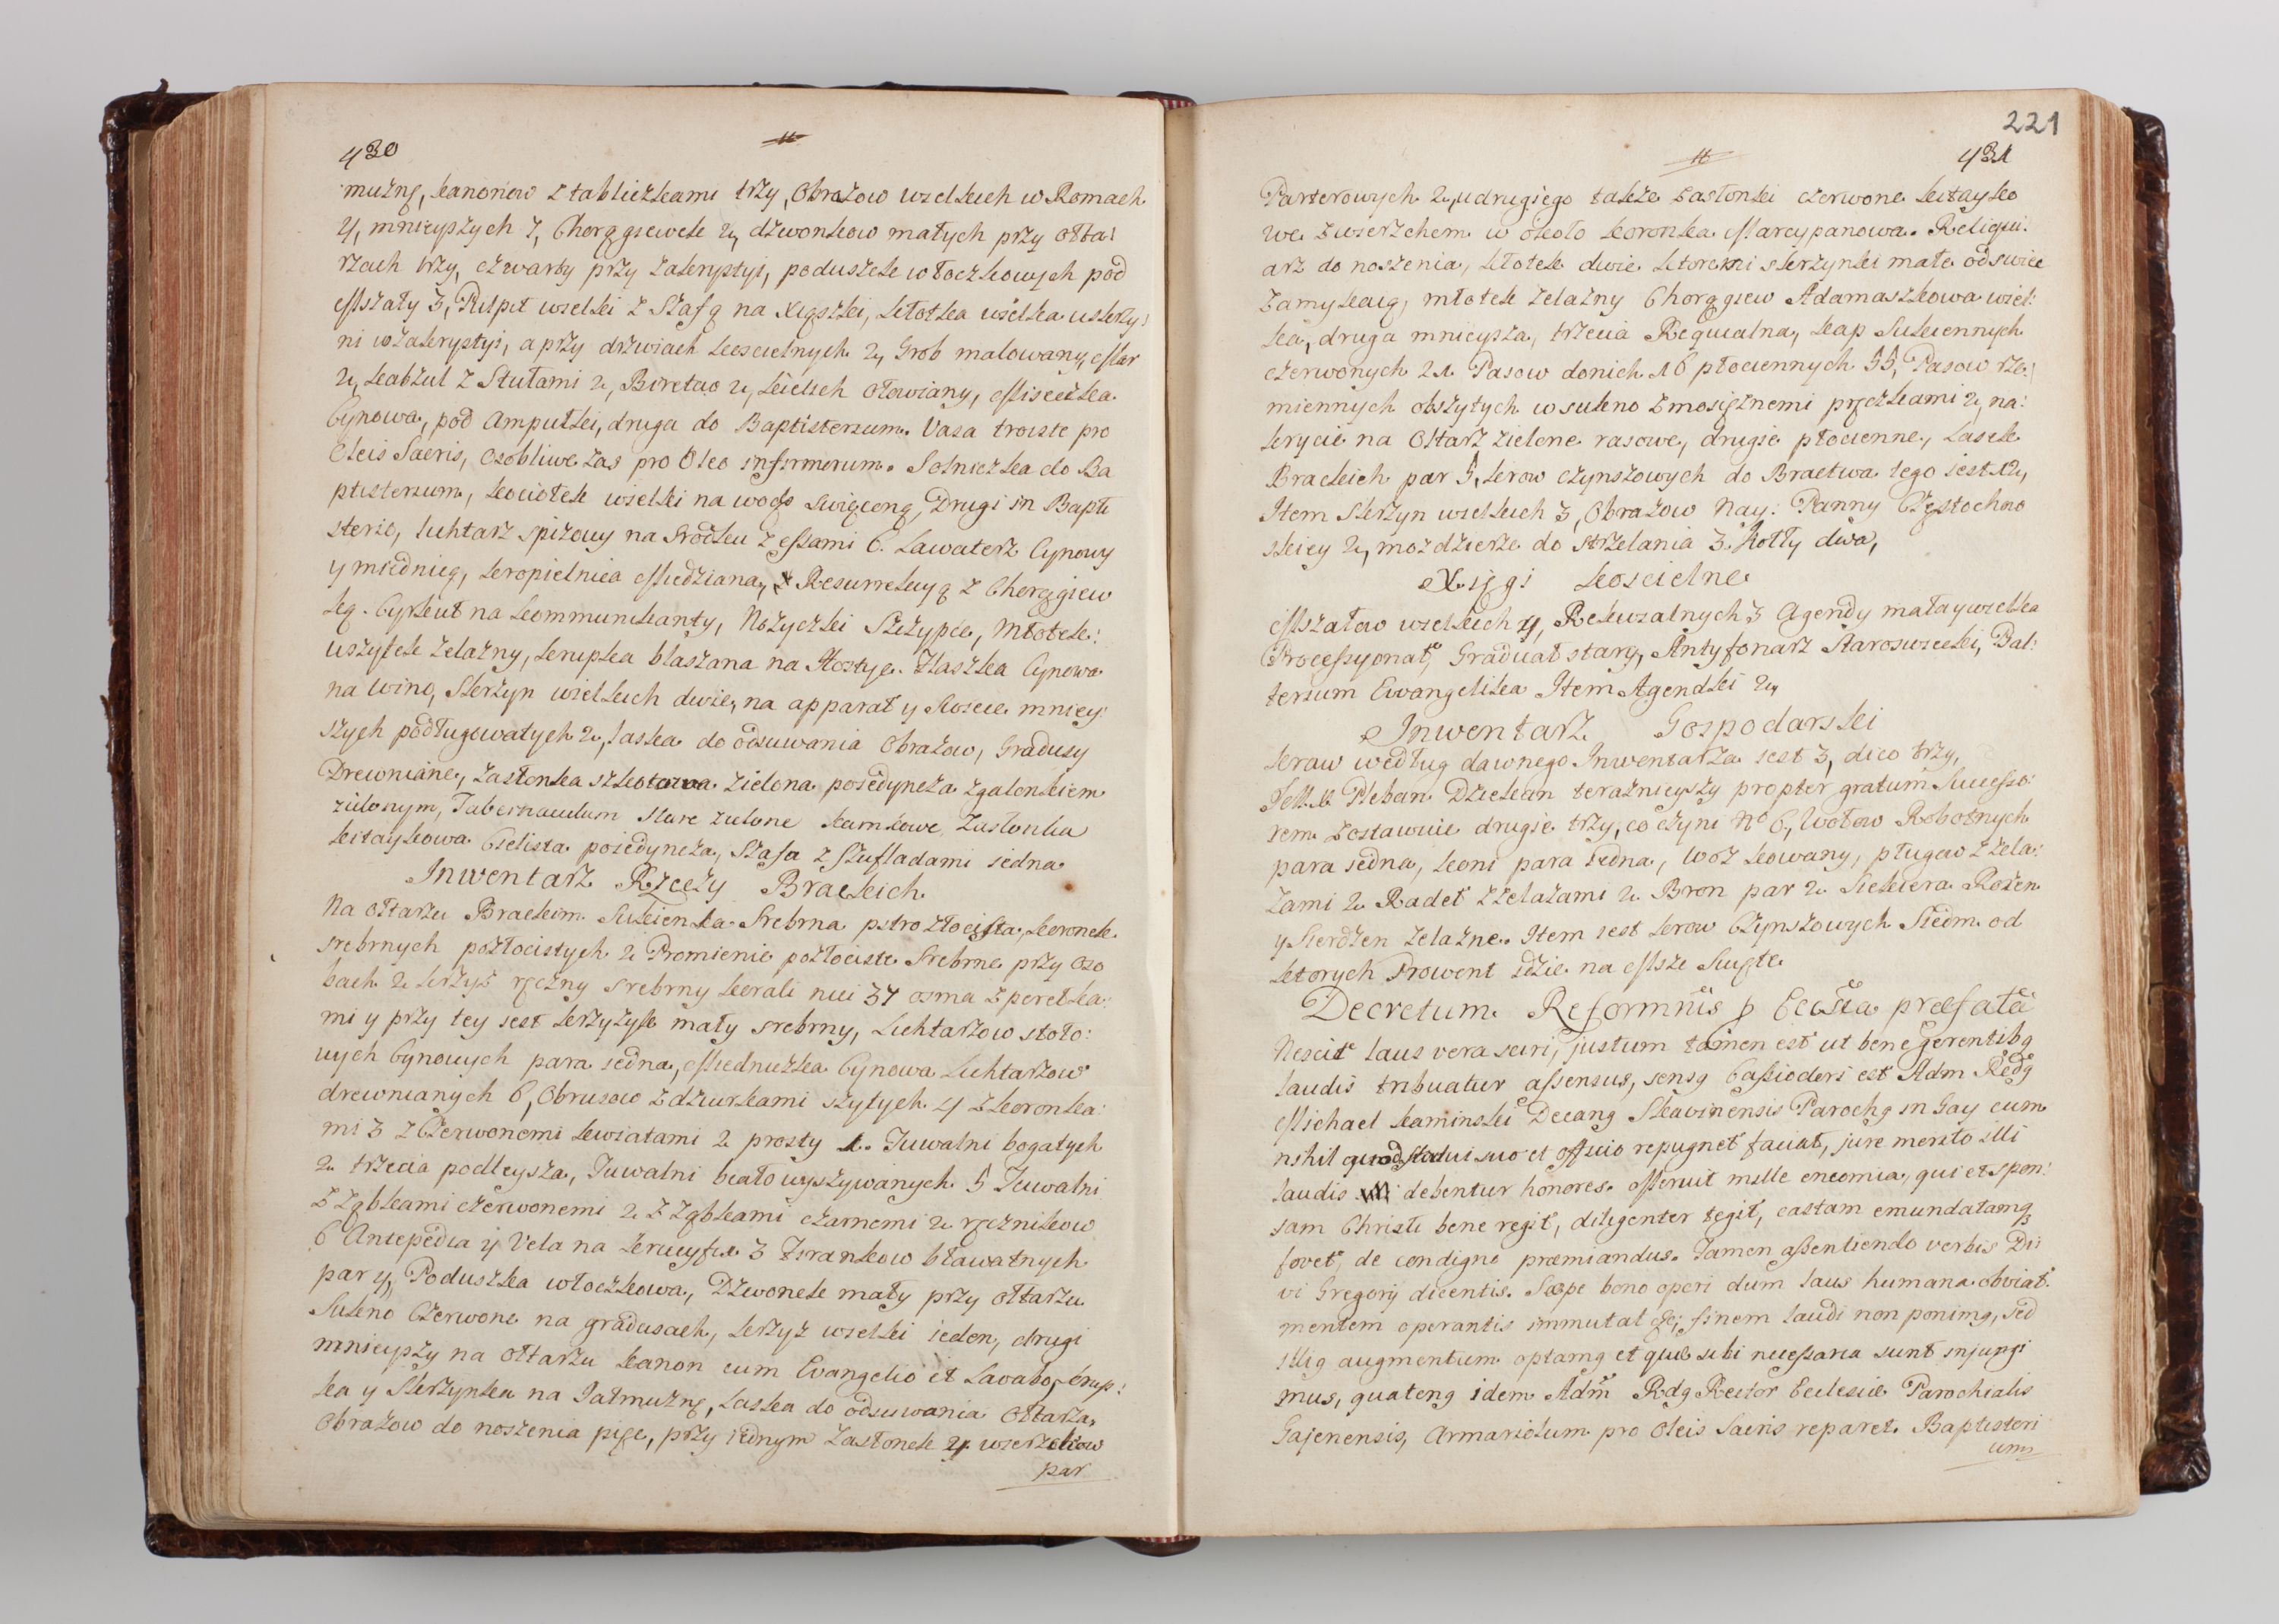 430
mużnę, kanonow z tabliczkami trzy, Obrazow wielkich w Ramach
4, mnieyszych 7, Chorągiewek 2, dzwonkow małych przy ołta:
rzach trzy, czwarty przy zakrystyi, poduszek włoczkowych pod
Mszały 3, Pulpit wielki z Szafą na Xiąszki, kłotka wielka u skrzy:
ni w zakrystyi, a przy drzwiach koscielnych 2, Grob malowany, Mar
2, kabzul z Stułami 2, Biretow 2, kielich ołowiany, Miseczka
Cynowa, pod Ampułki, druga do Baptisterium. Vasa troiste pro
Oleis Sacris, osobliwe zas pro Oleo infirmorum. Solniczka do Ba
ptisterium, kociołek wielki na wodę swięconą, Drugi in Bapti
sterio, luhtarz spiżowy na srodku z essami 6. Lawaterz Cynowy
y miednicą, kropielnica Miedziana, Resurrekcyą z Chorągiew
ką. Cyrkut na kommunikanty, Nożyczki Szczypce, Młotek:
uszyfek żelazny, krupka blaszana na Hostye. Flaszka Cynowa
na wino, Skrzyn wielkich dwie, na apparat y Swiece mniey:
szych podługowatych 2, laska do odsuwania Obrazow, Gradusy
Drewniane, zasłonka szkotowa zielona poiedyncza z galonkiem
zielonym, Tabernaculum stare zielone kamkowe, Zasłonka
kitaykowa Cielista poiedyncza, Szafa z szufladami iedna
Inwentarz Rzeczy Brackich
Na ołtarzu Brackim Sukienka Srebrna pstro złocista, koronek
srebrnych pozłocistych 2 Promienie pozłociste Srebrne przy Oso
bach 2 krzyż ręczny srebrny korali nici 37 osma z peretka:
mi y przy tey iest krzyżyk mały srebrny, Lichtarzow stoło:
wych Cynowych para iedna, Miedniczka Cynowa Lichtarzow
drewnianych 6, Obrusow z dziurkami szytych 4 z koronka:
mi 3 z Czerwonemi kwiatami 2 prosty 1. Tuwalni bogatych
2 trzecia podleysza, Tuwalni biało wyszywanych 5 Tuwalni
z ząbkami czerwonemi 2 z ząbkami czarnemi 2 ręcznikow
6 Antepedia 4 Vela na krucyfix 3 Firankow bławatnych
par 4, Poduszka włoczkowa, Dzwonek mały przy ołtarzu
Sukno Czerwone na gradusach, krzyż wielki ieden, drugi
mnieyszy na ołtarzu kanon cum Evangelio et Lavabo, krup:
ka y Skrzynka na Jałmużnę, Laska do odsuwania ołtarza,
Obrazow do noszenia pięc, przy iednym zasłonek 4 wierzchow
par
221
431
Parterowych 2, u drugiego także zasłonki czerwone kitayko
we z wierzchem w około koronka Marcypanowa. Reliqui:
arz do noszenia, kłotek dwie ktoremi skrzynki małe od swiec
zamykaią, młotek żelazny Chorągiew Adamaszkowa wiel:
ka, druga mnieysza, trzecia Requialna, kap Sukiennych
czerwonych 21 Pasow do nich 16 płociennych 55, Pasow rze:
miennych obszytych w sukno z mosiężnemi przączkami 2, na:
krycie na Ołtarz zielone rasowe, drugie płocienne, Lasek
Brackich par 5, krow czynszowych do Bractwa tego iest 12,
Item Skrzyn wielkich 3, Obrazow Nay: Panny Częstocho
skiey 2, mozdzierze do strzelania 3. Kotły dwa,
Xięgi koscielne
Mszałow wielkich 4, Rekwialnych 3 Agendy mała y wielka
Processyonał, Graduał stary, Antyfonarz Staroswiecki, Psał:
terium Ewangelika Item Agendki 2,
Inwentarz Gospodarski
krow według dawnego Inwentarza iest 3, dico trzy,
Pleban Dziekan teraznieyszy propter gratum Successo:
rem zostawuie drugie trzy, co czyni No 6, Wołow Robotnych
para iedna, koni para iedna, Woz kowany, pługow z żela:
zami 2 Radeł z żelazami 2 Bron par 2 Siekiera Rożen
y Sierdzen żelazne. Item iest krow Czynszowych Siedm od
ktorych Prowent idzie na Msze Swięte
Decretum Reformnis p Ecclia praefata
Nescit laus vera sciri, justum tamen est ut bene gerentibg
laudis tribuatur assensus, sensg Cassiodori est Adm Redg
Michael kaminski Decang Skavinensis Parochg in Gay cum
nihil quod statui suo et officio repugnet faciat, jure merito illi
laudis debentur honores. Meruit mille encomia, qui et spon:
sam Christi bene regit, diligenter tegit, castam emundatamq
fovet, de condigno praemiandus. Tamen assentiendo verbis Di:
vi Gregorij dicentis. Saepe bono operi dum laus humana obviat
mentem operantis immutat &c, finem laudi non ponimg, sed
illig augmentum optamg et quae sibi necessaria sunt injungi
mus, quateng idem Adm Rdg Rector Ecclesiae Parochialis
Gajenensis, Armariolum pro Oleis Sacris reparet. Baptisteri
um